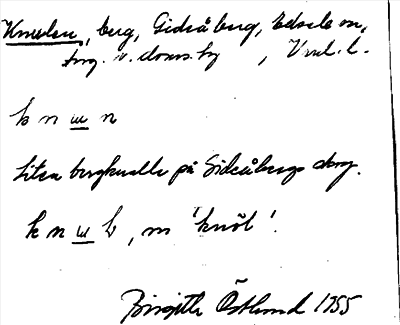 Knulen, berg, Gideåberg, Edsele sn,
Ång. v. doms.hg, Vnl. l.
k n ɯ n
Liten bergknalle på Gideåbergs
k n ɯ l, m 'knöl'.
Birgitta Östlund 1955